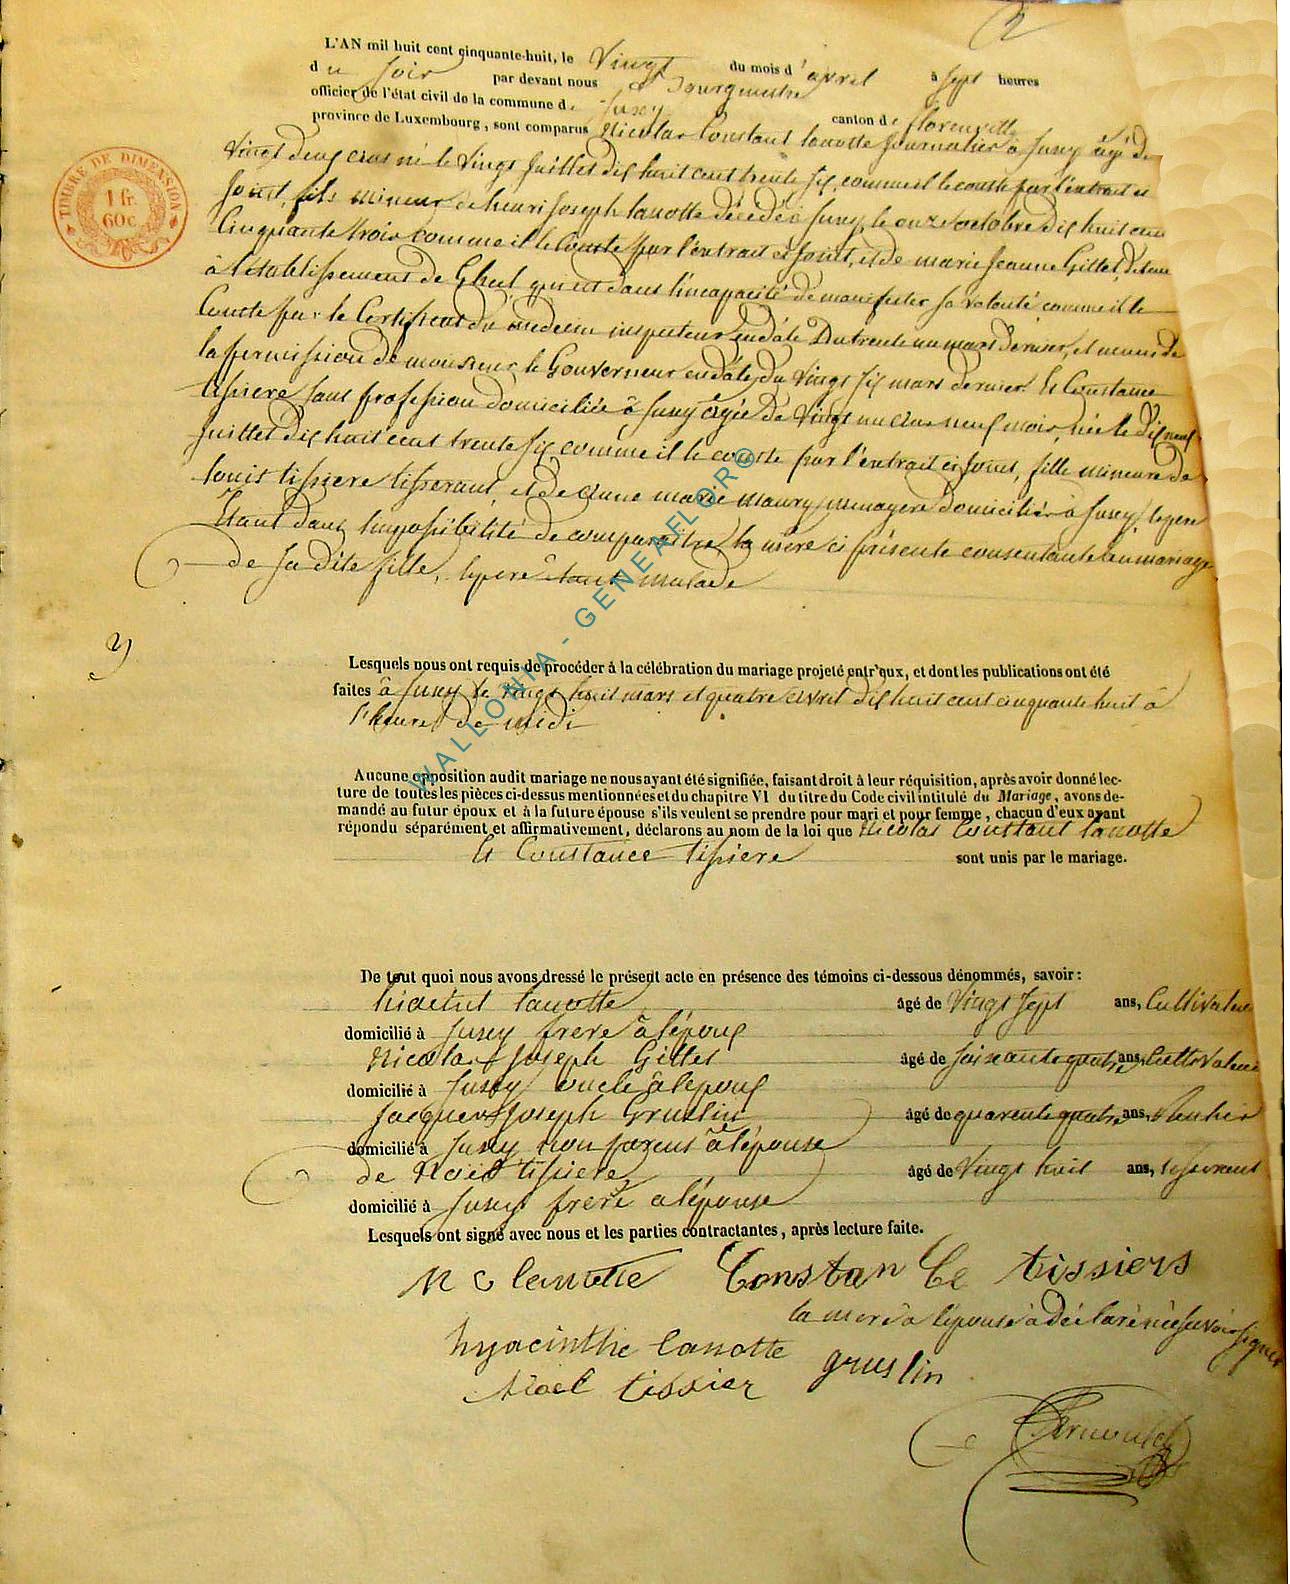 2
L'AN mil huit cent cinquante-huit, le Vingt du mois d'avril à Sept heures
du Soir par devant nous Bourgmestre
officier de l'état civil de la commune de Jusey canton de florenville
province de Luxembourg, sont comparus Nicolas Constant lanotte journalier à Jusey âgé de
Vingt deux ans né le Vingt Juillet dix huit cent trente six, comme il le conste par l'extrait ci
Joint, fils mineur de henri Joseph lanotte décédé à Jusey, le onze octobre dix huit cent
Cinquante trois comme il le Conste par l'extrait ci joint, et de marie Jeanne Gillet, détenue
à l'établissement de Gheel qui est dans l'incapacité de manifester sa volonté comme il le
Conste par le Certificat du médecin inspecteur en date Du trente un mars dernier, et muni de
la permission de monsieur le Gouverneur en date du Vingt six mars dernier Et Constance
tissiere sans profession domiciliée à Jusey âgée de Vingt un ans neuf mois, née le dix neuf
Juillet dix huit cent trente six, comme il le conste par l'extrait ci joint, fille mineure de
louis tissiere tisserant, et de anne marie maury menagere domiciliés à Jusey, le pere
Etant dans l'impossibilité de comparaitre la mère ci présente consentante au mariage
de sa dite fille, le pere étant malade
Lesquels nous ont requis de procéder à la célébration du mariage projeté entr'eux, et dont les publications ont été
faites à Jusey le vingt huit mars et quatre avril dix huit cent cinquante huit à
l'heure de midi
Aucune opposition audit mariage ne nous ayant été signifiée, faisant droit à leur réquisition, après avoir donné lec-
ture de toutes les pièces ci-dessus mentionnées et du chapitre VI du titre du Code civil intitulé du Mariage, avons de-
mandé au futur époux et à la future épouse s'ils veulent se prendre pour mari et pour femme, chacun d'eux ayant
répondu séparément et affirmativement, déclarons au nom de la loi que Nicolas Constant lanotte
Et Constance tissiere sont unis par le mariage.
De tout quoi nous avons dressé le présent acte en présence des témoins ci-dessous dénommés, savoir:
lanotte âgé de Vingt Sept ans, Cultivateur
domicilié à Jusey frere à l'époux
Nicolas Joseph Gillet âgé de soixante quatre ans, Cultivateur
domicilié à Jusey oncle à l'époux
Jacques Joseph Gruslin âgé de quarente quatre ans, Rentier
domicilié à Jusey non parent à l'épouse
de Noël tissiere âgé de Vingt huit ans, tisserant
domicilié à Jusey frere à l'épouse
Lesquels ont signé avec nous et les parties contractantes, après lecture faite.
N C lanotte Constan Ce tissiers
la mere à l'épouse à déclaré ne savoir signer
hyacinthe lanotte gruslin
Noel tissier
TIMBRE DE DIMENSION
1 fr.
60 c.
WALLONIA - GENEAFLOR©